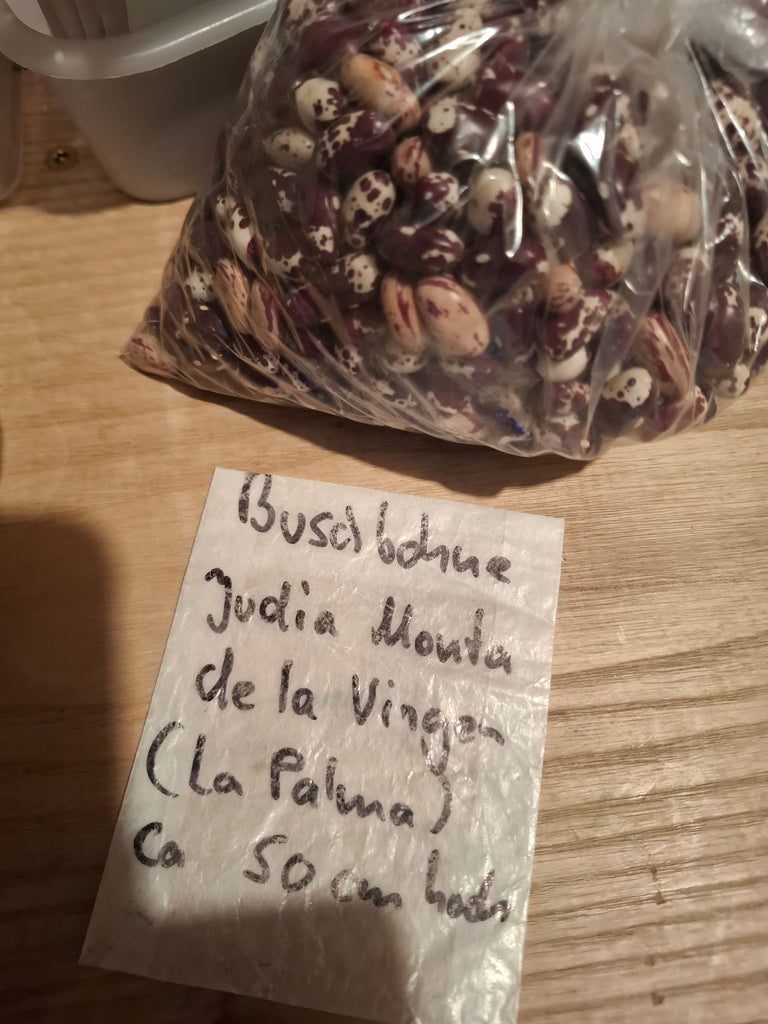 Buschbohne
Judia Monta
de la Vingen
(La Palma)
Ca 50 cm hoch